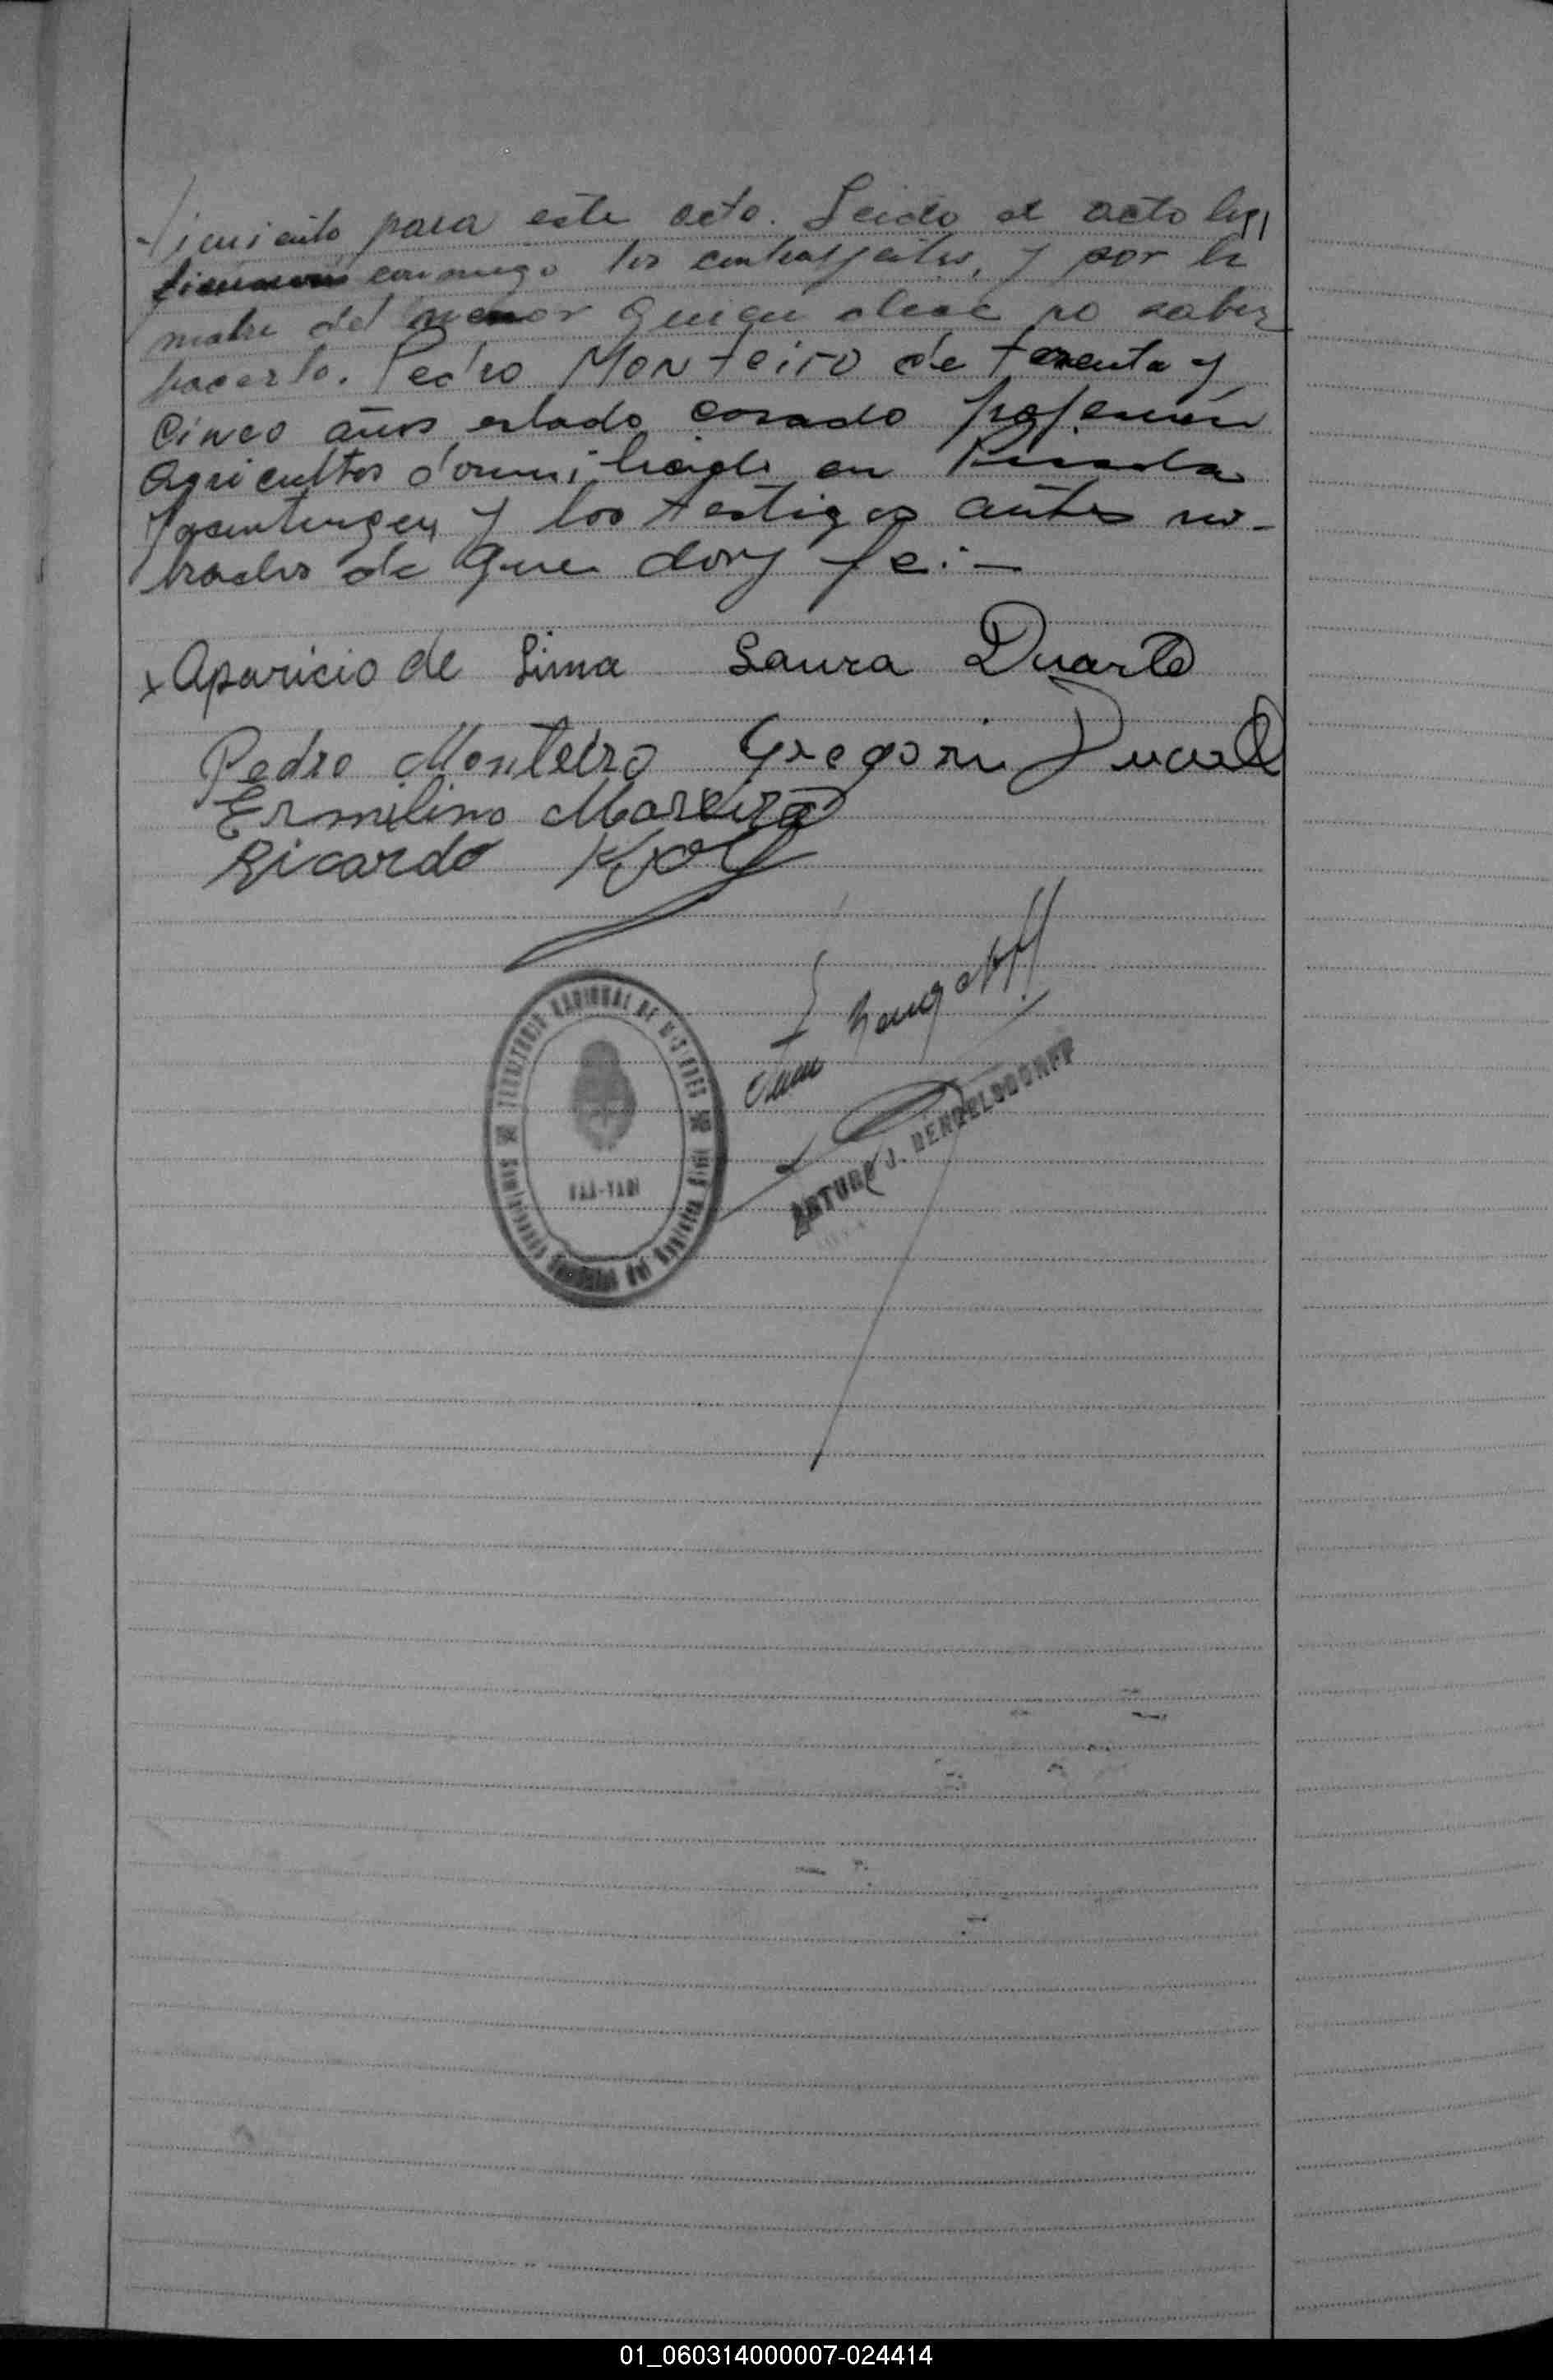 para este acto. Leido el acto la
firmaron conmigo los contrayentes, y por la
madre del menor quien dice no saber
hacerlo. Pedro Monteiro de treenta y
Cinco años estado casado profesión
Agricultor domiciliado en Picada
y los testigos antes no-
brados de que doy fe.—
x Aparicio de Lima Laura Duarte
Pedro Monteiro Gregorio Duarte
Ermilino Moreira
Ricardo
TERRITORIO NACIONAL DE MISIONES
CAÁ-YARÍ
Seccional del Registro Civil
ARTURO J. BENGELSDORFF
01_060314000007-024414